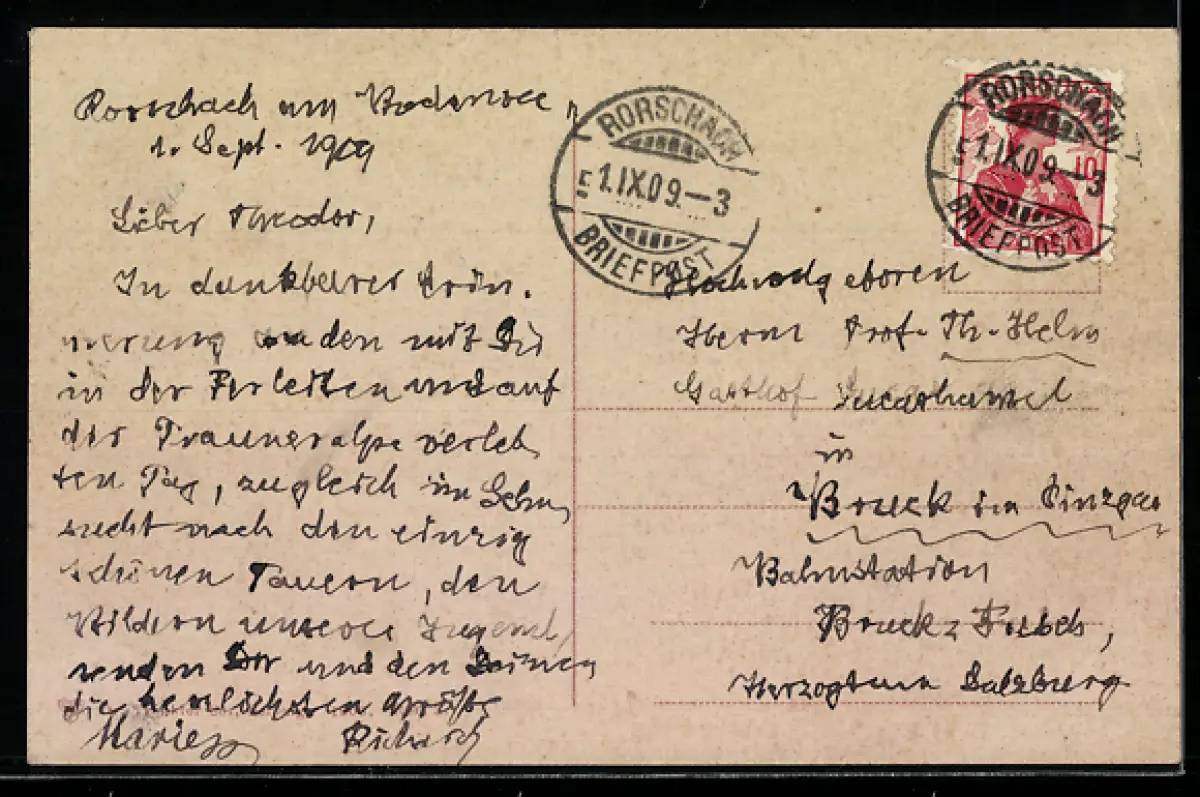 Rorschach am Bodensee,
1. Sept. 1909
Lieber Theodor,
In dankbarer Erin-
nerung an den mit Dir
in der Ferleiten und auf
der Trauneralpe verleb-
ten Tag, zugleich in Sehn-
sucht nach den einzig
schönen Tauern, den
Bildern unserer Jugend,
senden Dir und den Deinen
die herzlichsten Grüße
Marie Richard
RORSCHACH
1.IX.09.–3
BRIEFPOST
RORSCHACH
1.IX.09.–3
BRIEFPOST
10
Hochwohlgeboren
Herrn Prof. Th. Helm
Gasthof Lucashansel
in
Bruck im Pinzgau
Bahnstation
Bruck-Fusch,
Herzogtum Salzburg